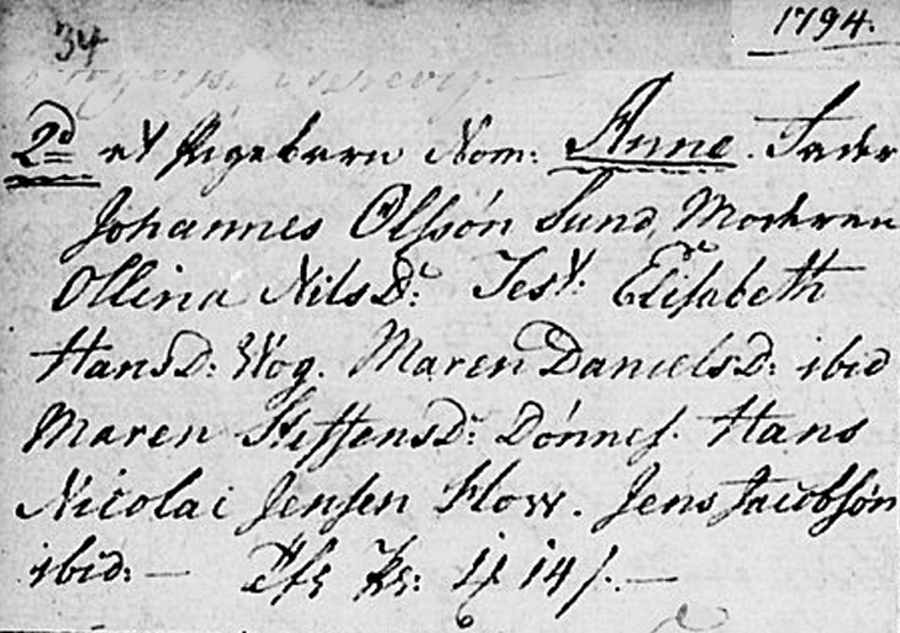 34
1794.
2d et Pigebarn Nom: Anne. Fader
Johannes Olssón Sund, Moderen
Ollina NilsDr: Test: Elisabeth
HansD: Wog. Maren DanielsD: ibid
Maren SteffensDr: Dónnes. Hans
Nicolai Jensen Flow. Jens Jacobsón
ibid: —